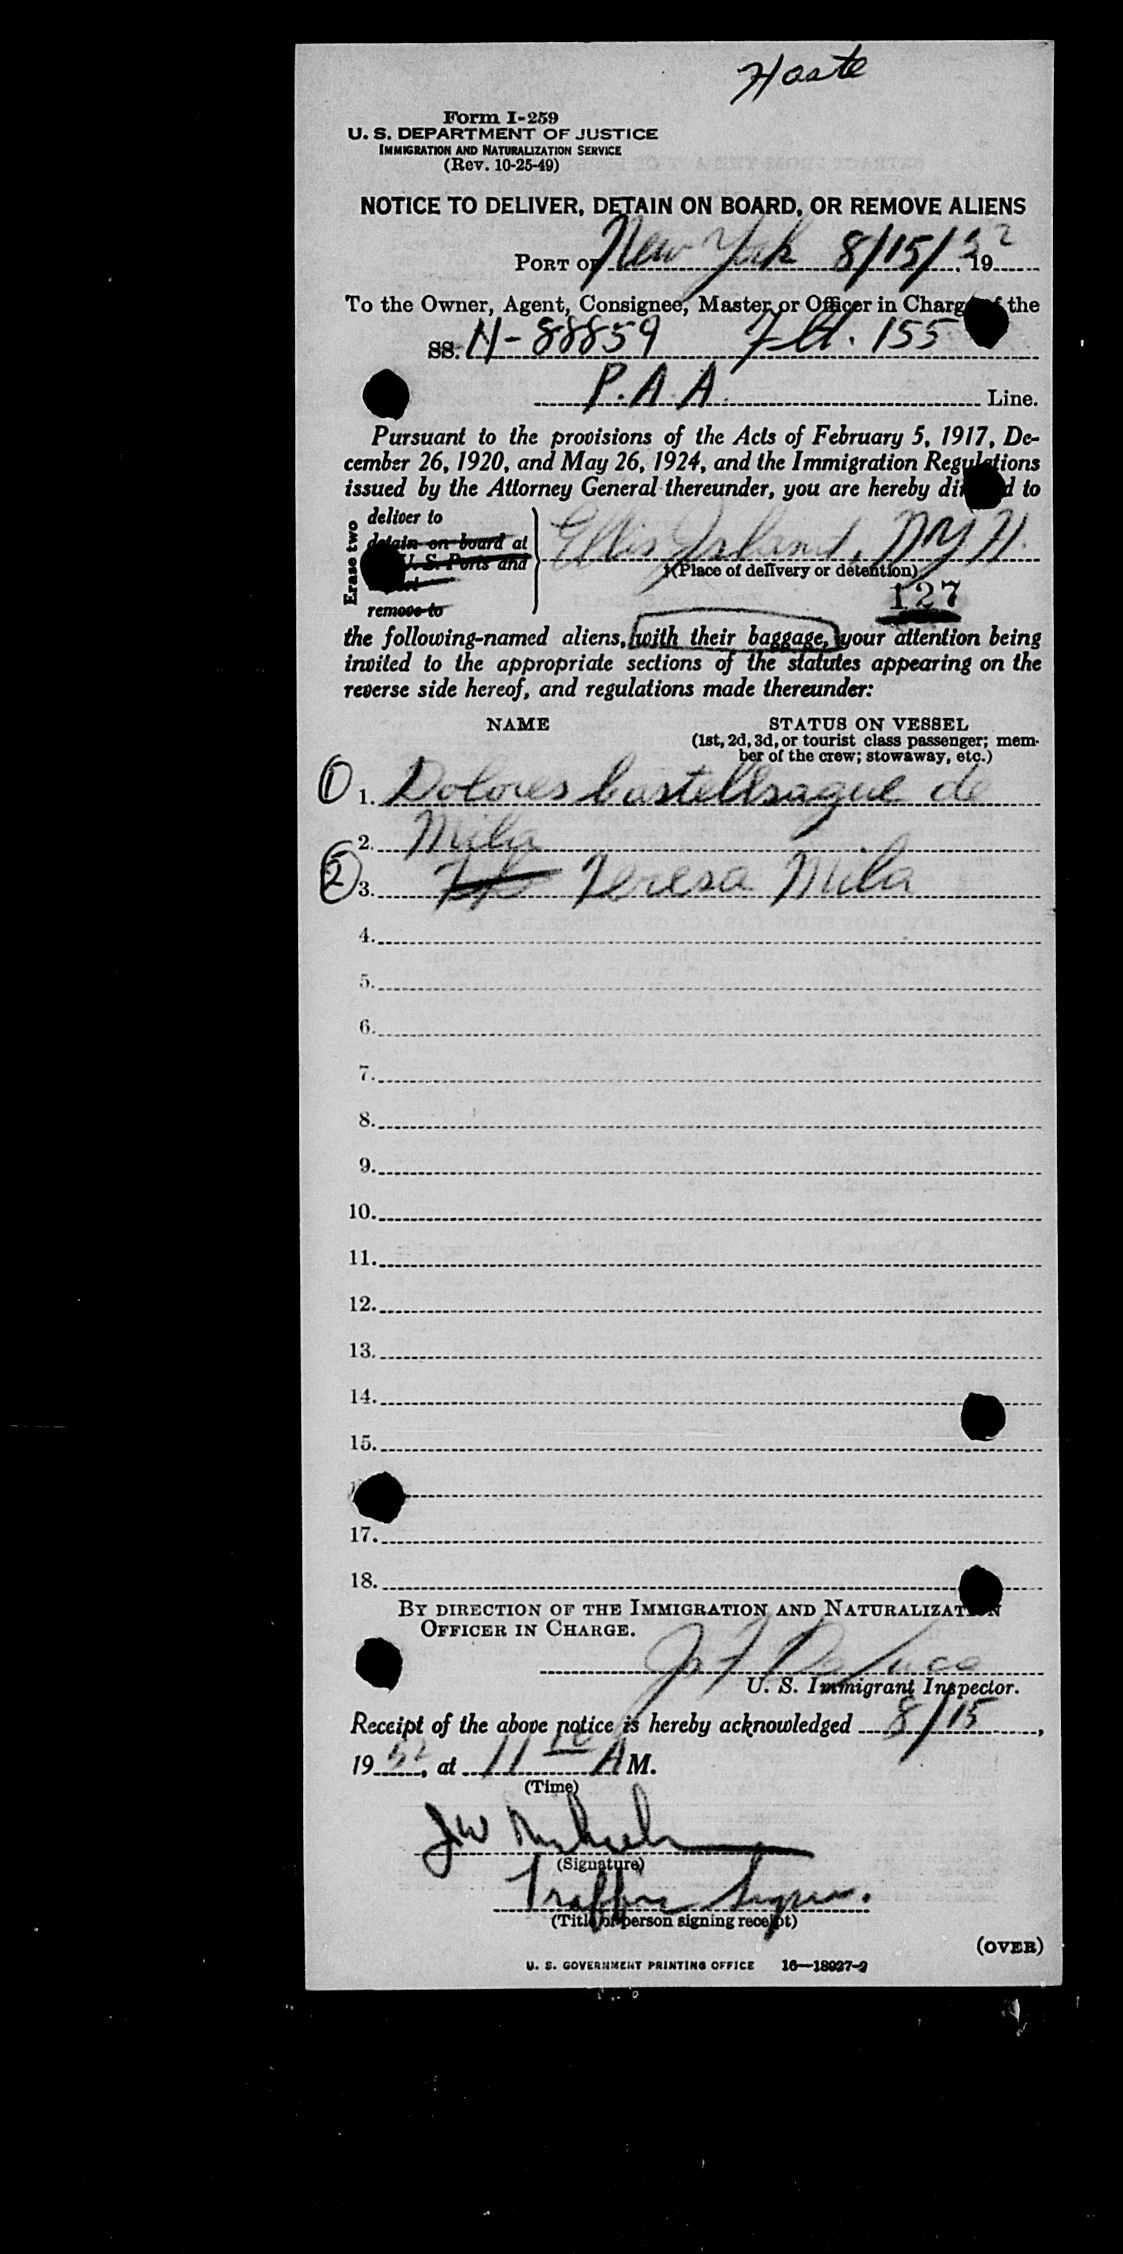 Haste
Form I-259
U. S. DEPARTMENT OF JUSTICE
IMMIGRATION AND NATURALIZATION SERVICE
(Rev. 10-25-49)
NOTICE TO DELIVER, DETAIN ON BOARD, OR REMOVE ALIENS
PORT OF New York 8/15/52, 19
To the Owner, Agent, Consignee, Master, or Officer in Charge of the
SS. N-88859 Flt. 155
P.A.A. Line.
Pursuant to the provisions of the Acts of February 5, 1917, De-
cember 26, 1920, and May 26, 1924, and the Immigration Regulations
issued by the Attorney General thereunder, you are hereby directed to
Erase two
deliver to
detain on board at
U. S. Ports and
remove to
Ellis Island, NYH.
(Place of delivery or detention)
127
the following-named aliens, with their baggage, your attention being
invited to the appropriate sections of the statutes appearing on the
reverse side hereof, and regulations made thereunder:
NAME STATUS ON VESSEL
(1st, 2d, 3d, or tourist class passenger; mem-
ber of the crew; stowaway, etc.)
1 1. Dolores Castellsague de
2. Mila
2 3. Teresa Mila
4.
5.
6.
7.
8.
9.
10.
11.
12.
13.
14.
15.
17.
18.
BY DIRECTION OF THE IMMIGRATION AND NATURALIZATION
OFFICER IN CHARGE.
De Luca
U. S. Immigrant Inspector.
Receipt of the above notice is hereby acknowledged 8/15,
19 52, at 11 10 A M.
(Time)
JW
(Signature)
Traffic
(Title of person signing receipt)
(OVER)
U. S. GOVERNMENT PRINTING OFFICE 16—18927-2